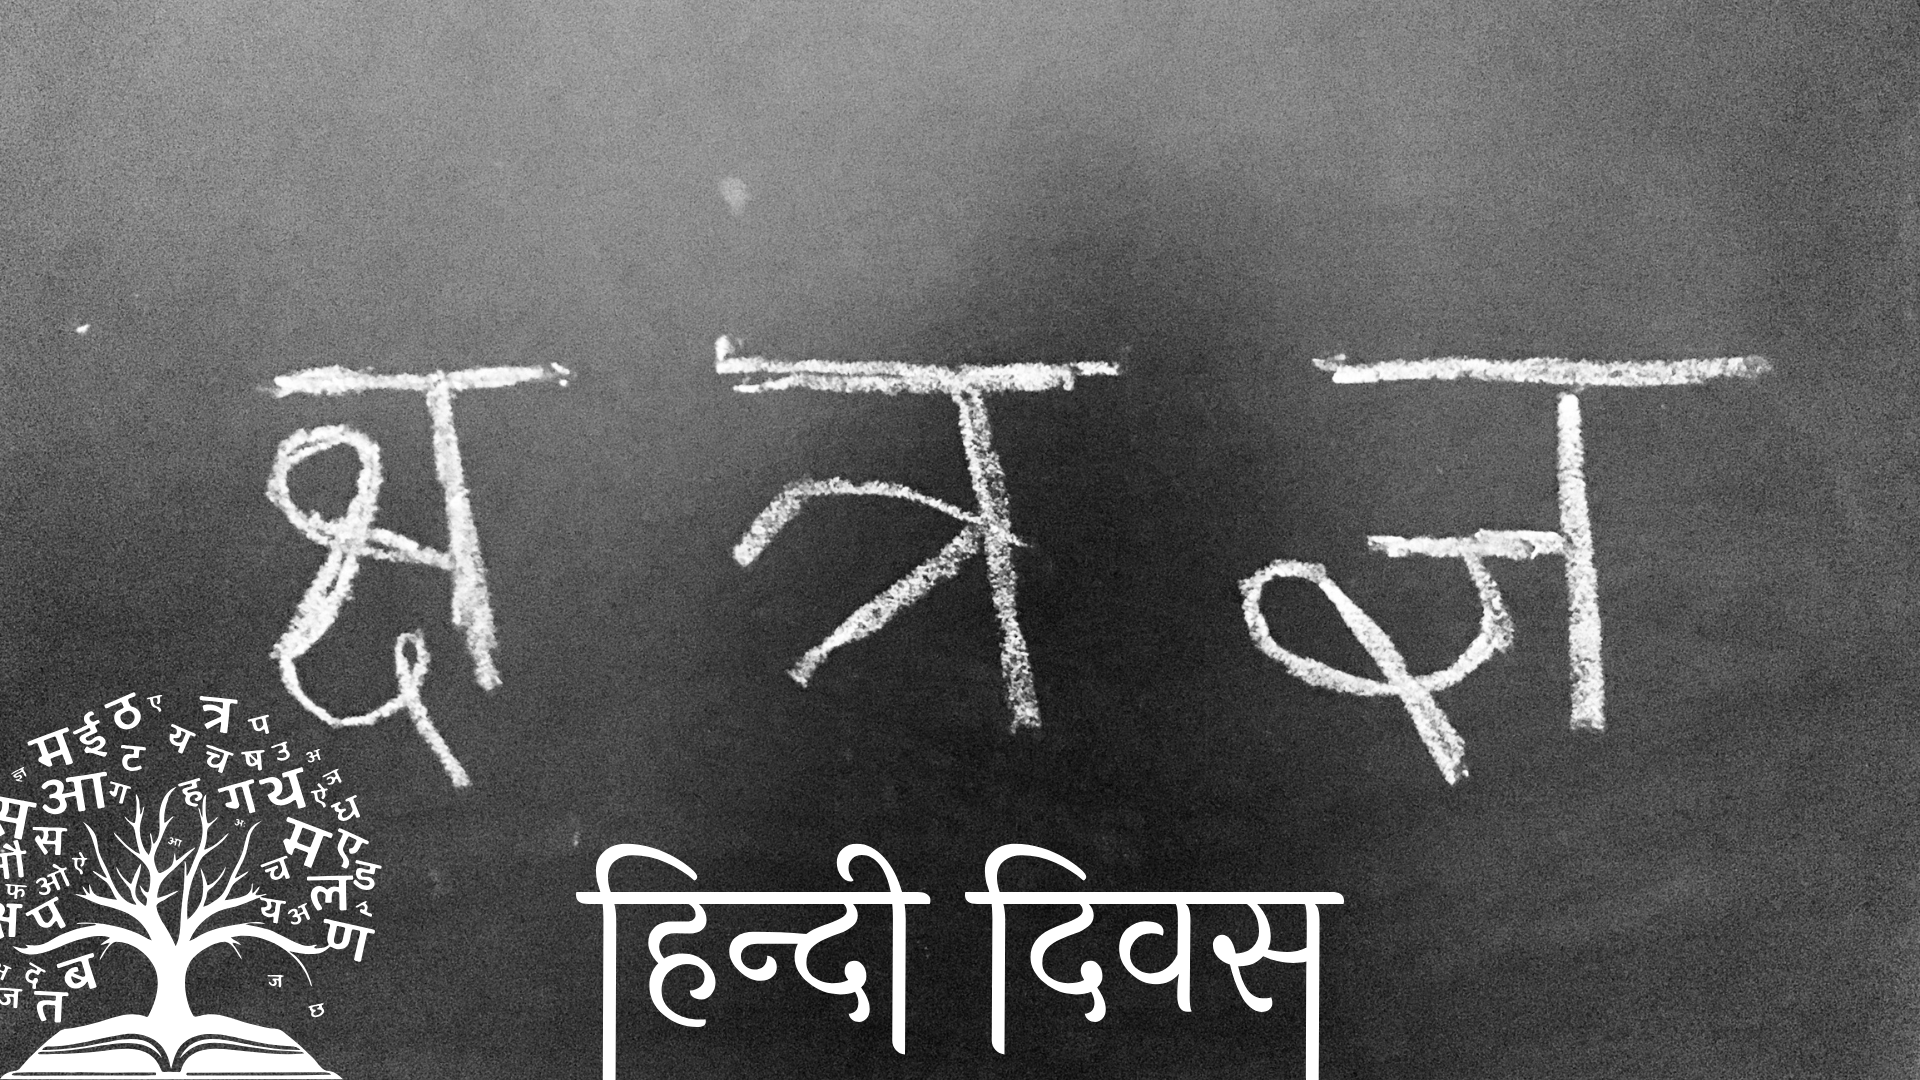 क्ष त्र ज्ञ
हिन्दी दिवस
ठ ए त्र प
म ई ट य च ष उ अ
ज्ञ आ ग ह ग थ ऐ ञ
स स अः ध
औ आ म ए
फ ओ ऐ च ल ड
क्ष प य अ र
ण
द ब ज
ज त छ